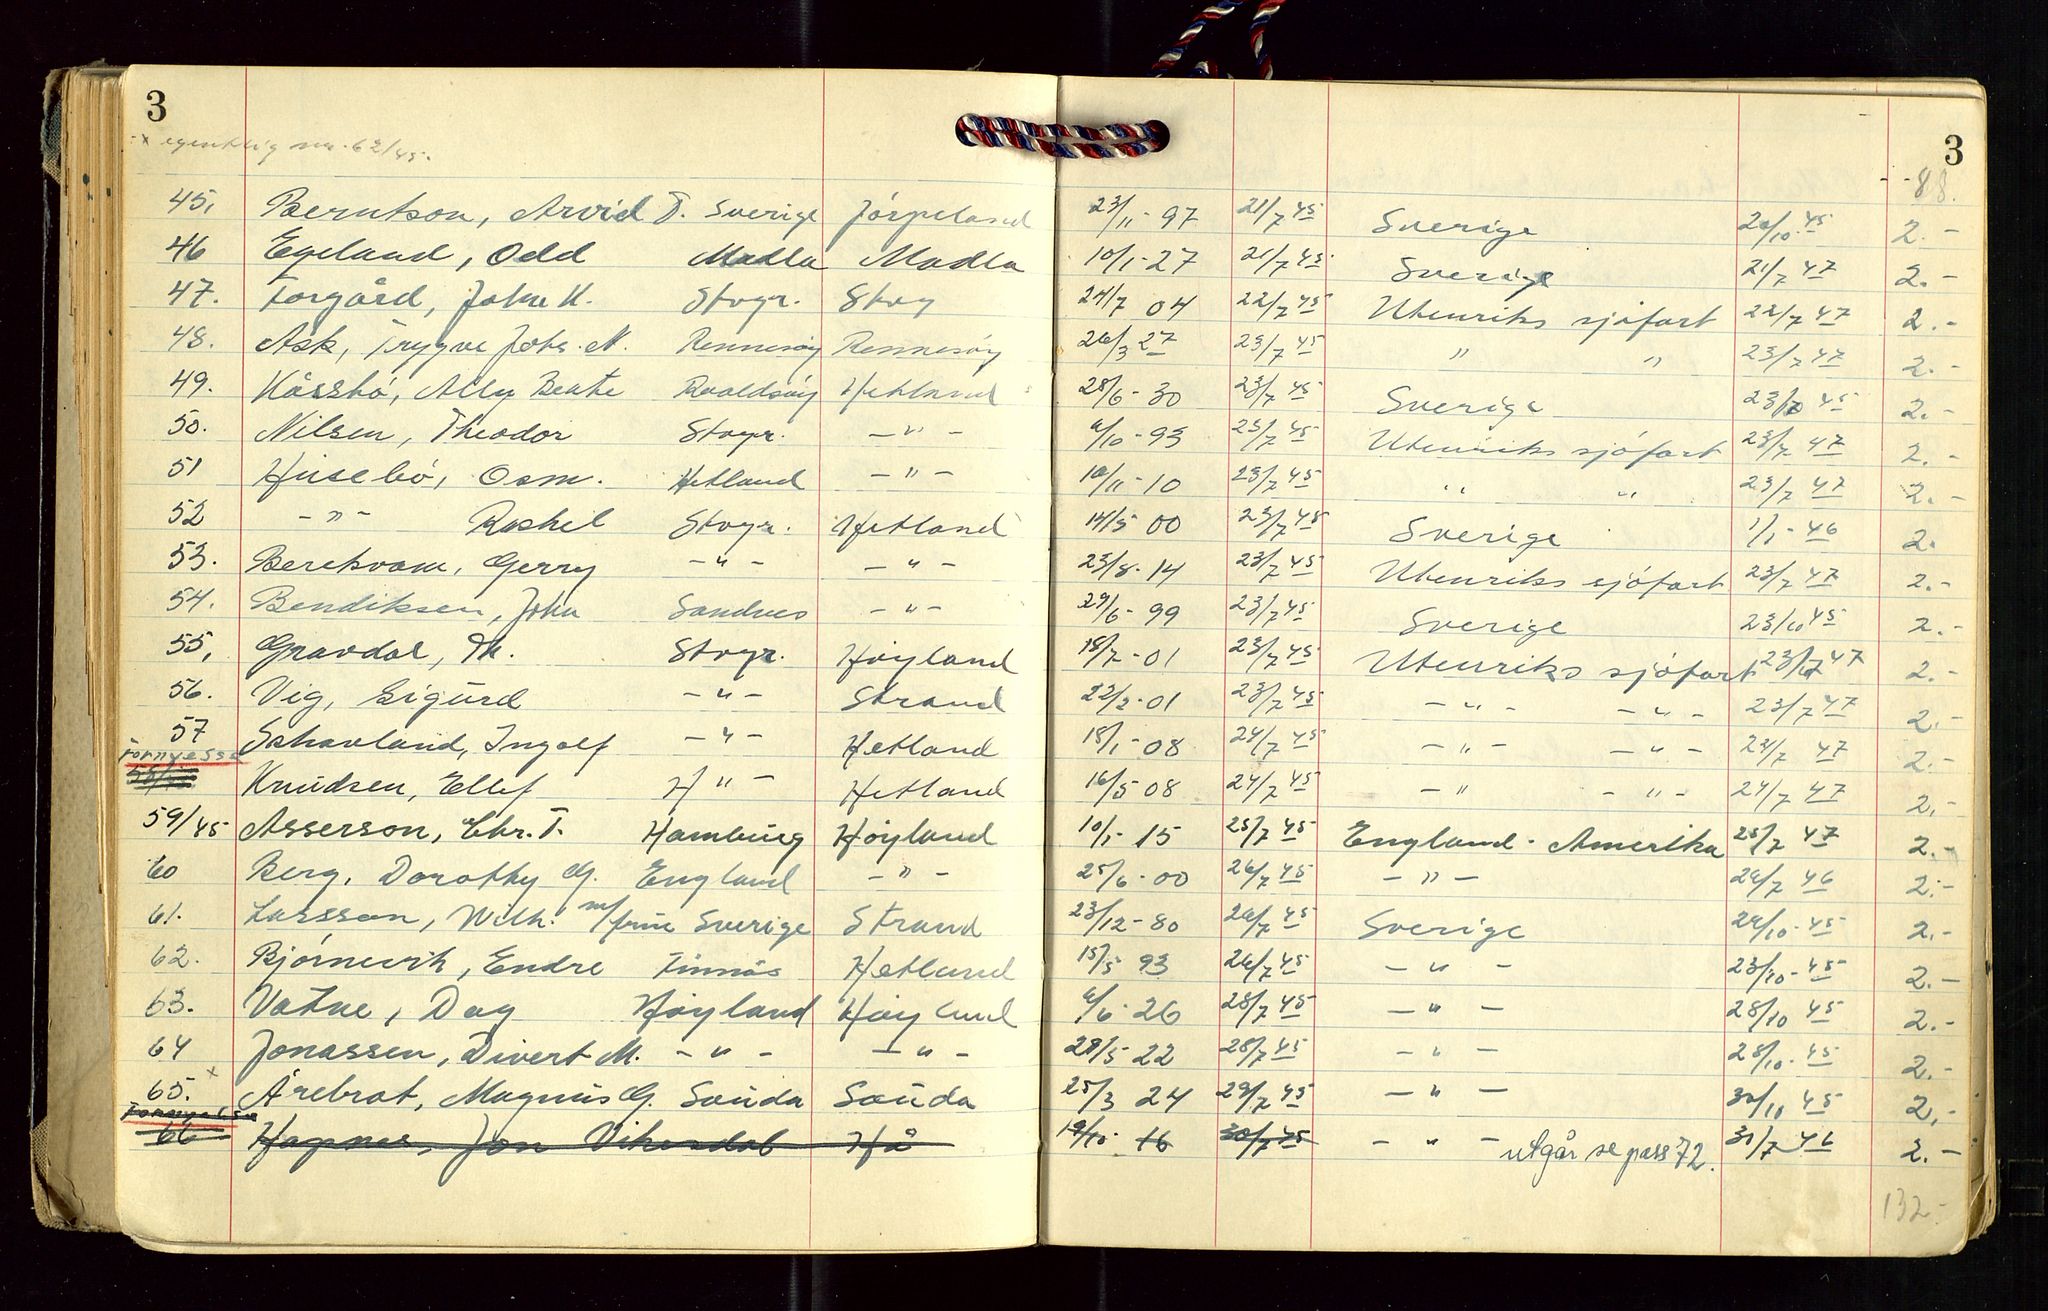 3
3
x egentlig nr. 62/45.
- - 88.
45. Berntson, Arvid T. Sverige Jørpeland 23/11-97 21/7 45 Sverige 20/10-45 2.-
46 Egeland, Odd Madla Madla 10/1-27 21/7 45 Sverige 21/7 47 2.-
47. Torgård, John K. Stvgr. Stvg 24/7 04 22/7 45 Utenriks sjøfart 22/7 47 2.-
48. Ask, Trygve Johs. M. Rennesøy Rennesøy 26/3 27 23/7 45 " " 23/7 47 2.-
49. Kåsbø, Ally Beate Roaldsøy Hetland 28/6-30 23/7 45 Sverige 23/10 45 2.-
50. Nilsen, Theodor Stvgr. -"- 6/10-93 23/7 45 Utenriks sjøfart 23/7 47 2.-
51 Husebø, Osm. Hetland -"- 10/11-10 23/7 45 " " 23/7 47 2.-
52 -"- Rakel Stvgr. Hetland 14/5 00 23/7 45 Sverige 1/1-46 2.
53. Berekvam, Gerry -"- -"- 23/8-14 23/7 45 Utenriks sjøfart 23/7 47 2.-
54. Bendiksen, John Sandnes -"- 29/6-99 23/7 45 Sverige 23/10 45 2.-
55. Gravdal, Th. Stvgr. Høyland 18/7-01 23/7 45 Utenriks sjøfart 23/7 47 2.-
56. Vig, Sigurd -"- Strand 22/2-01 23/7 45 -"- -"- 23/7 47 2.-
57 Schavland, Ingolf -"- Hetland 18/1-08 24/7 45 -"- -"- 23/7 47 2.-
Fornyesse
58/45 Knudsen, Ellef H "- Hetland 16/5-08 24/7 45 -"- -"- 24/7 47 2.-
59/45 Asserson, Chr. T. Hamburg Høyland 10/1-15 25/7 45 England - Amerika 25/7 47 2.-
60 Berg, Dorothy G. England -"- 25/6-00 26/7 45 -"- 26/7 46 2.-
61. Larsson, Wilh. m/frue Sverige Strand 23/12-80 26/7 45 Sverige 24/10-45 2.-
62. Bjørnevik, Endre Tinnås Hetland 15/5 93 26/7 45 -"- 23/10-45 2.-
63. Vatne, Dag Høyland Høyland 6/6-26 28/7 45 -"- 28/10 45 2.-
64 Jonassen, Divert M. -"- -"- 28/5 22 28/7 45 -"- 28/10-45 2.-
65. x Årebrot, Magnus G. Sauda Sauda 25/3 24 29/7 45 -"- 30/10 45 2.-
Fornyesse
66 Hapnes, Jon Vikesdal Hå 19/10-16 30/7-45 -"- utgår se pass 72. 31/7 46 2.-
132.-